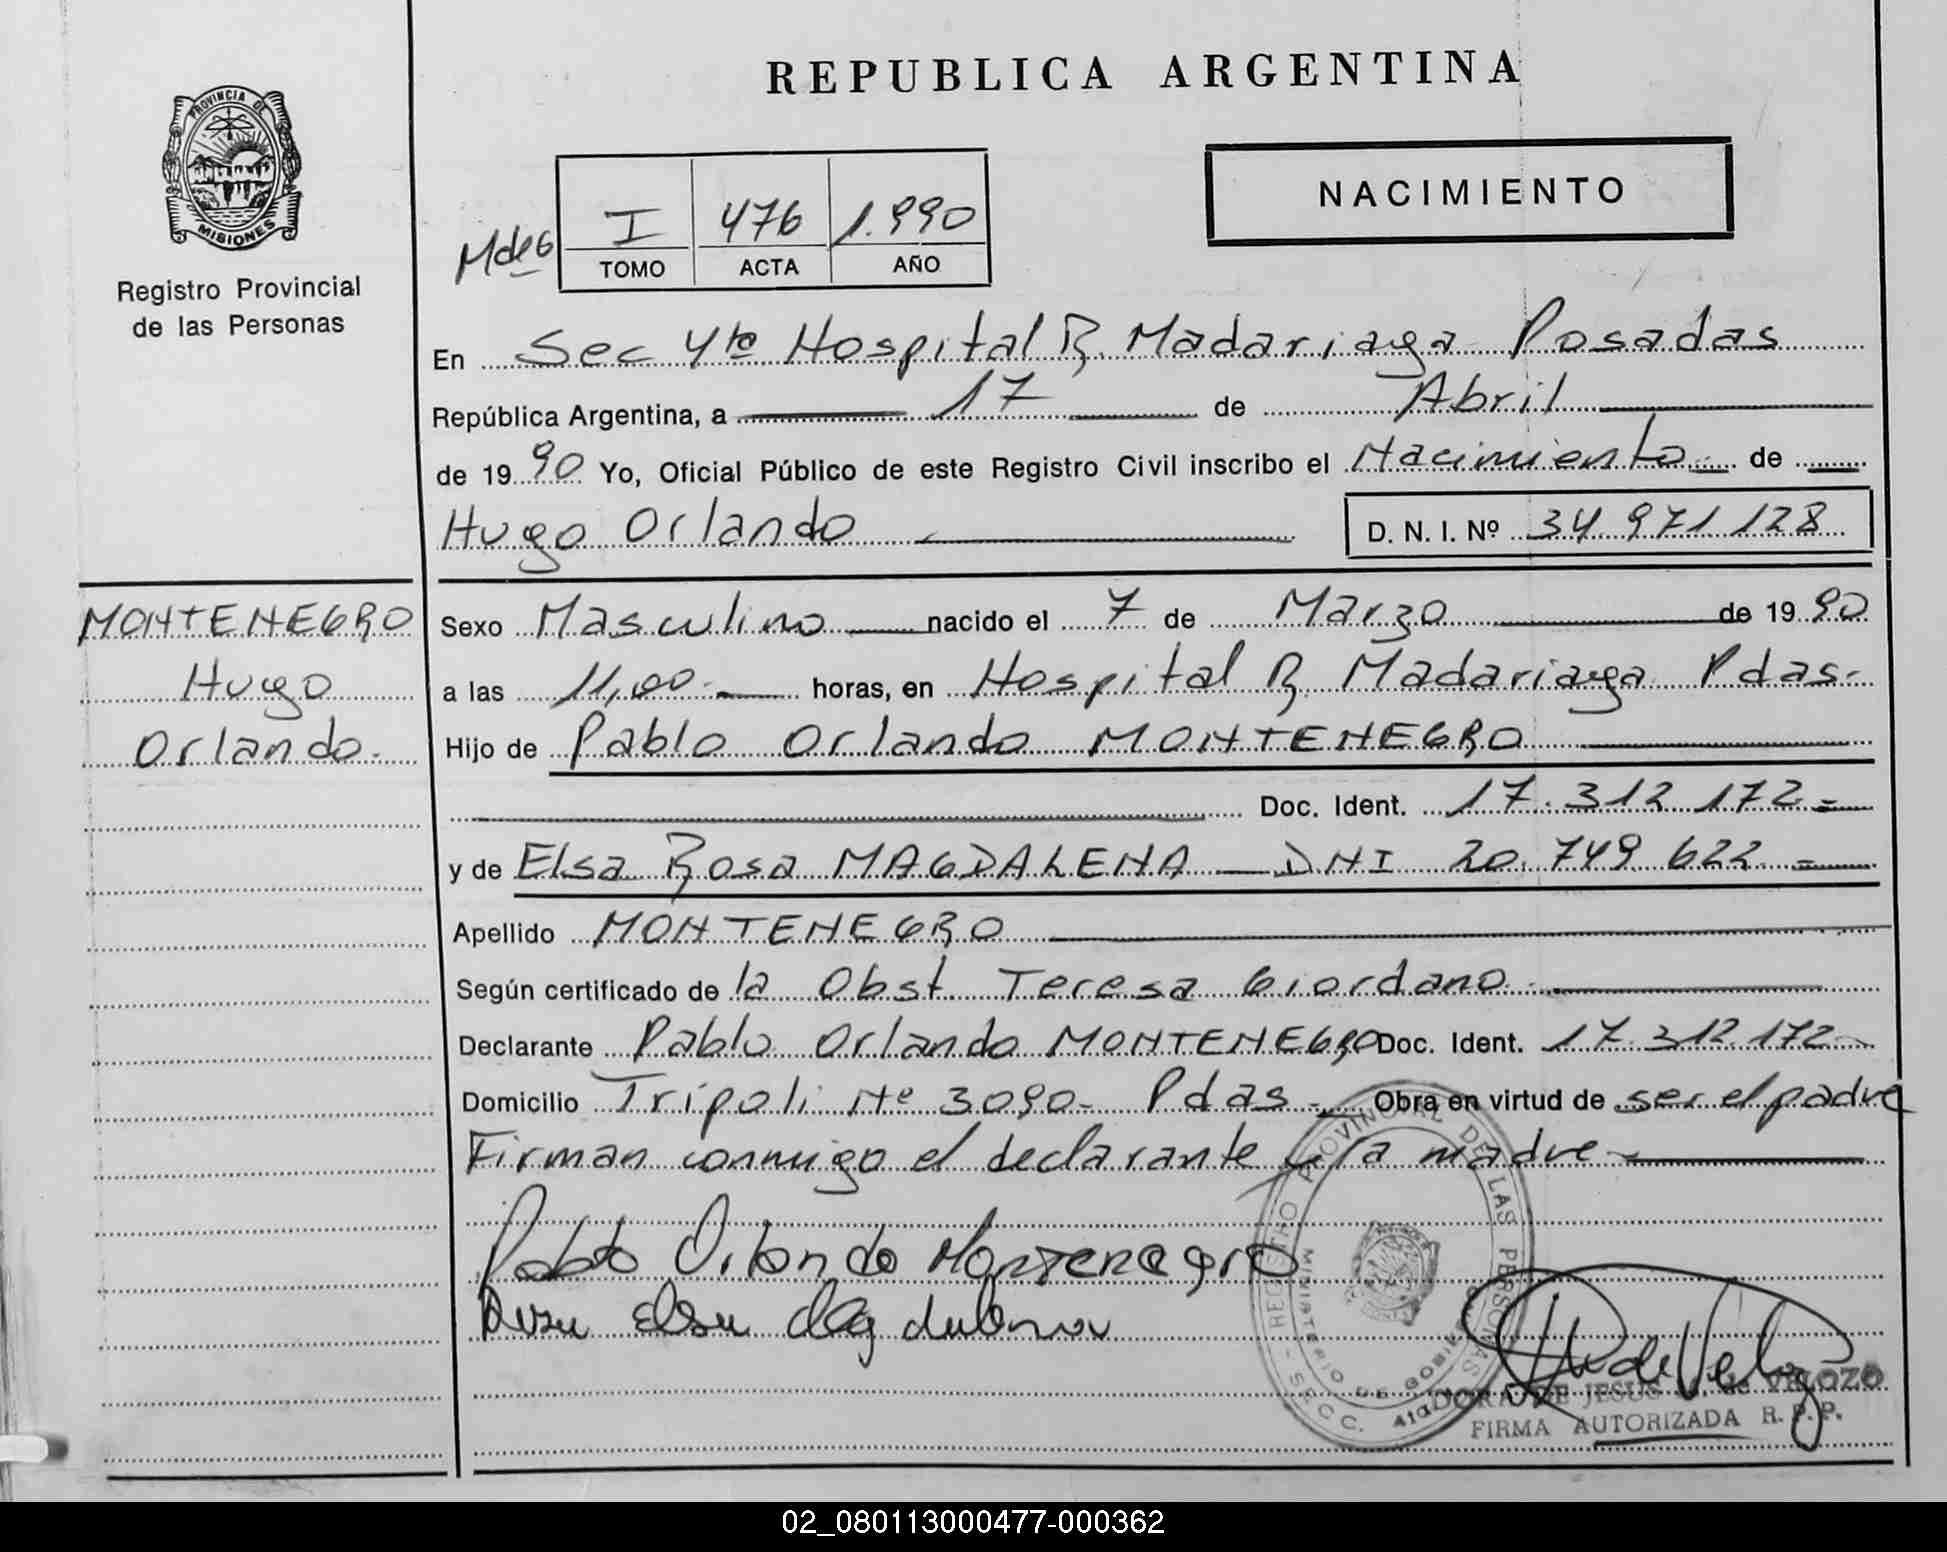 REPUBLICA ARGENTINA
PROVINCIA DE
MISIONES
Registro Provincial
de las Personas
Mdeo
I 476 1.990
TOMO ACTA AÑO
NACIMIENTO
En Sec 4ta Hospital R. Madariaga Posadas
República Argentina, a 17 de Abril
de 1990 Yo, Oficial Público de este Registro Civil inscribo el Nacimiento de
Hugo Orlando D. N. I. Nº 34 971 128
MONTENEGRO
Hugo
Orlando.
Sexo Masculino nacido el 7 de Marzo de 1990
a las 11,00 horas, en Hospital R. Madariaga Pdas.
Hijo de Pablo Orlando MONTENEGRO
Doc. Ident. 17.312 172
y de Elsa Rosa MAGDALENA DNI 20.749 622
Apellido MONTENEGRO
Según certificado de la Obst. Teresa Giordano
Declarante Pablo Orlando MONTENEGRO Doc. Ident. 17 312 172
Domicilio Trípoli Nº 3090- Pdas. Obra en virtud de ser el padre
Firman conmigo el declarante y la madre
Pablo Orlando Montenegro
Rosa Elsa Magdalena
REGISTRO PROVINCIAL DE LAS PERSONAS
MINISTERIO DE GOBIERNO
SECC. 4ta
DORA DE JESUS de VELOZO
FIRMA AUTORIZADA R. P. P.
02_080113000477-000362